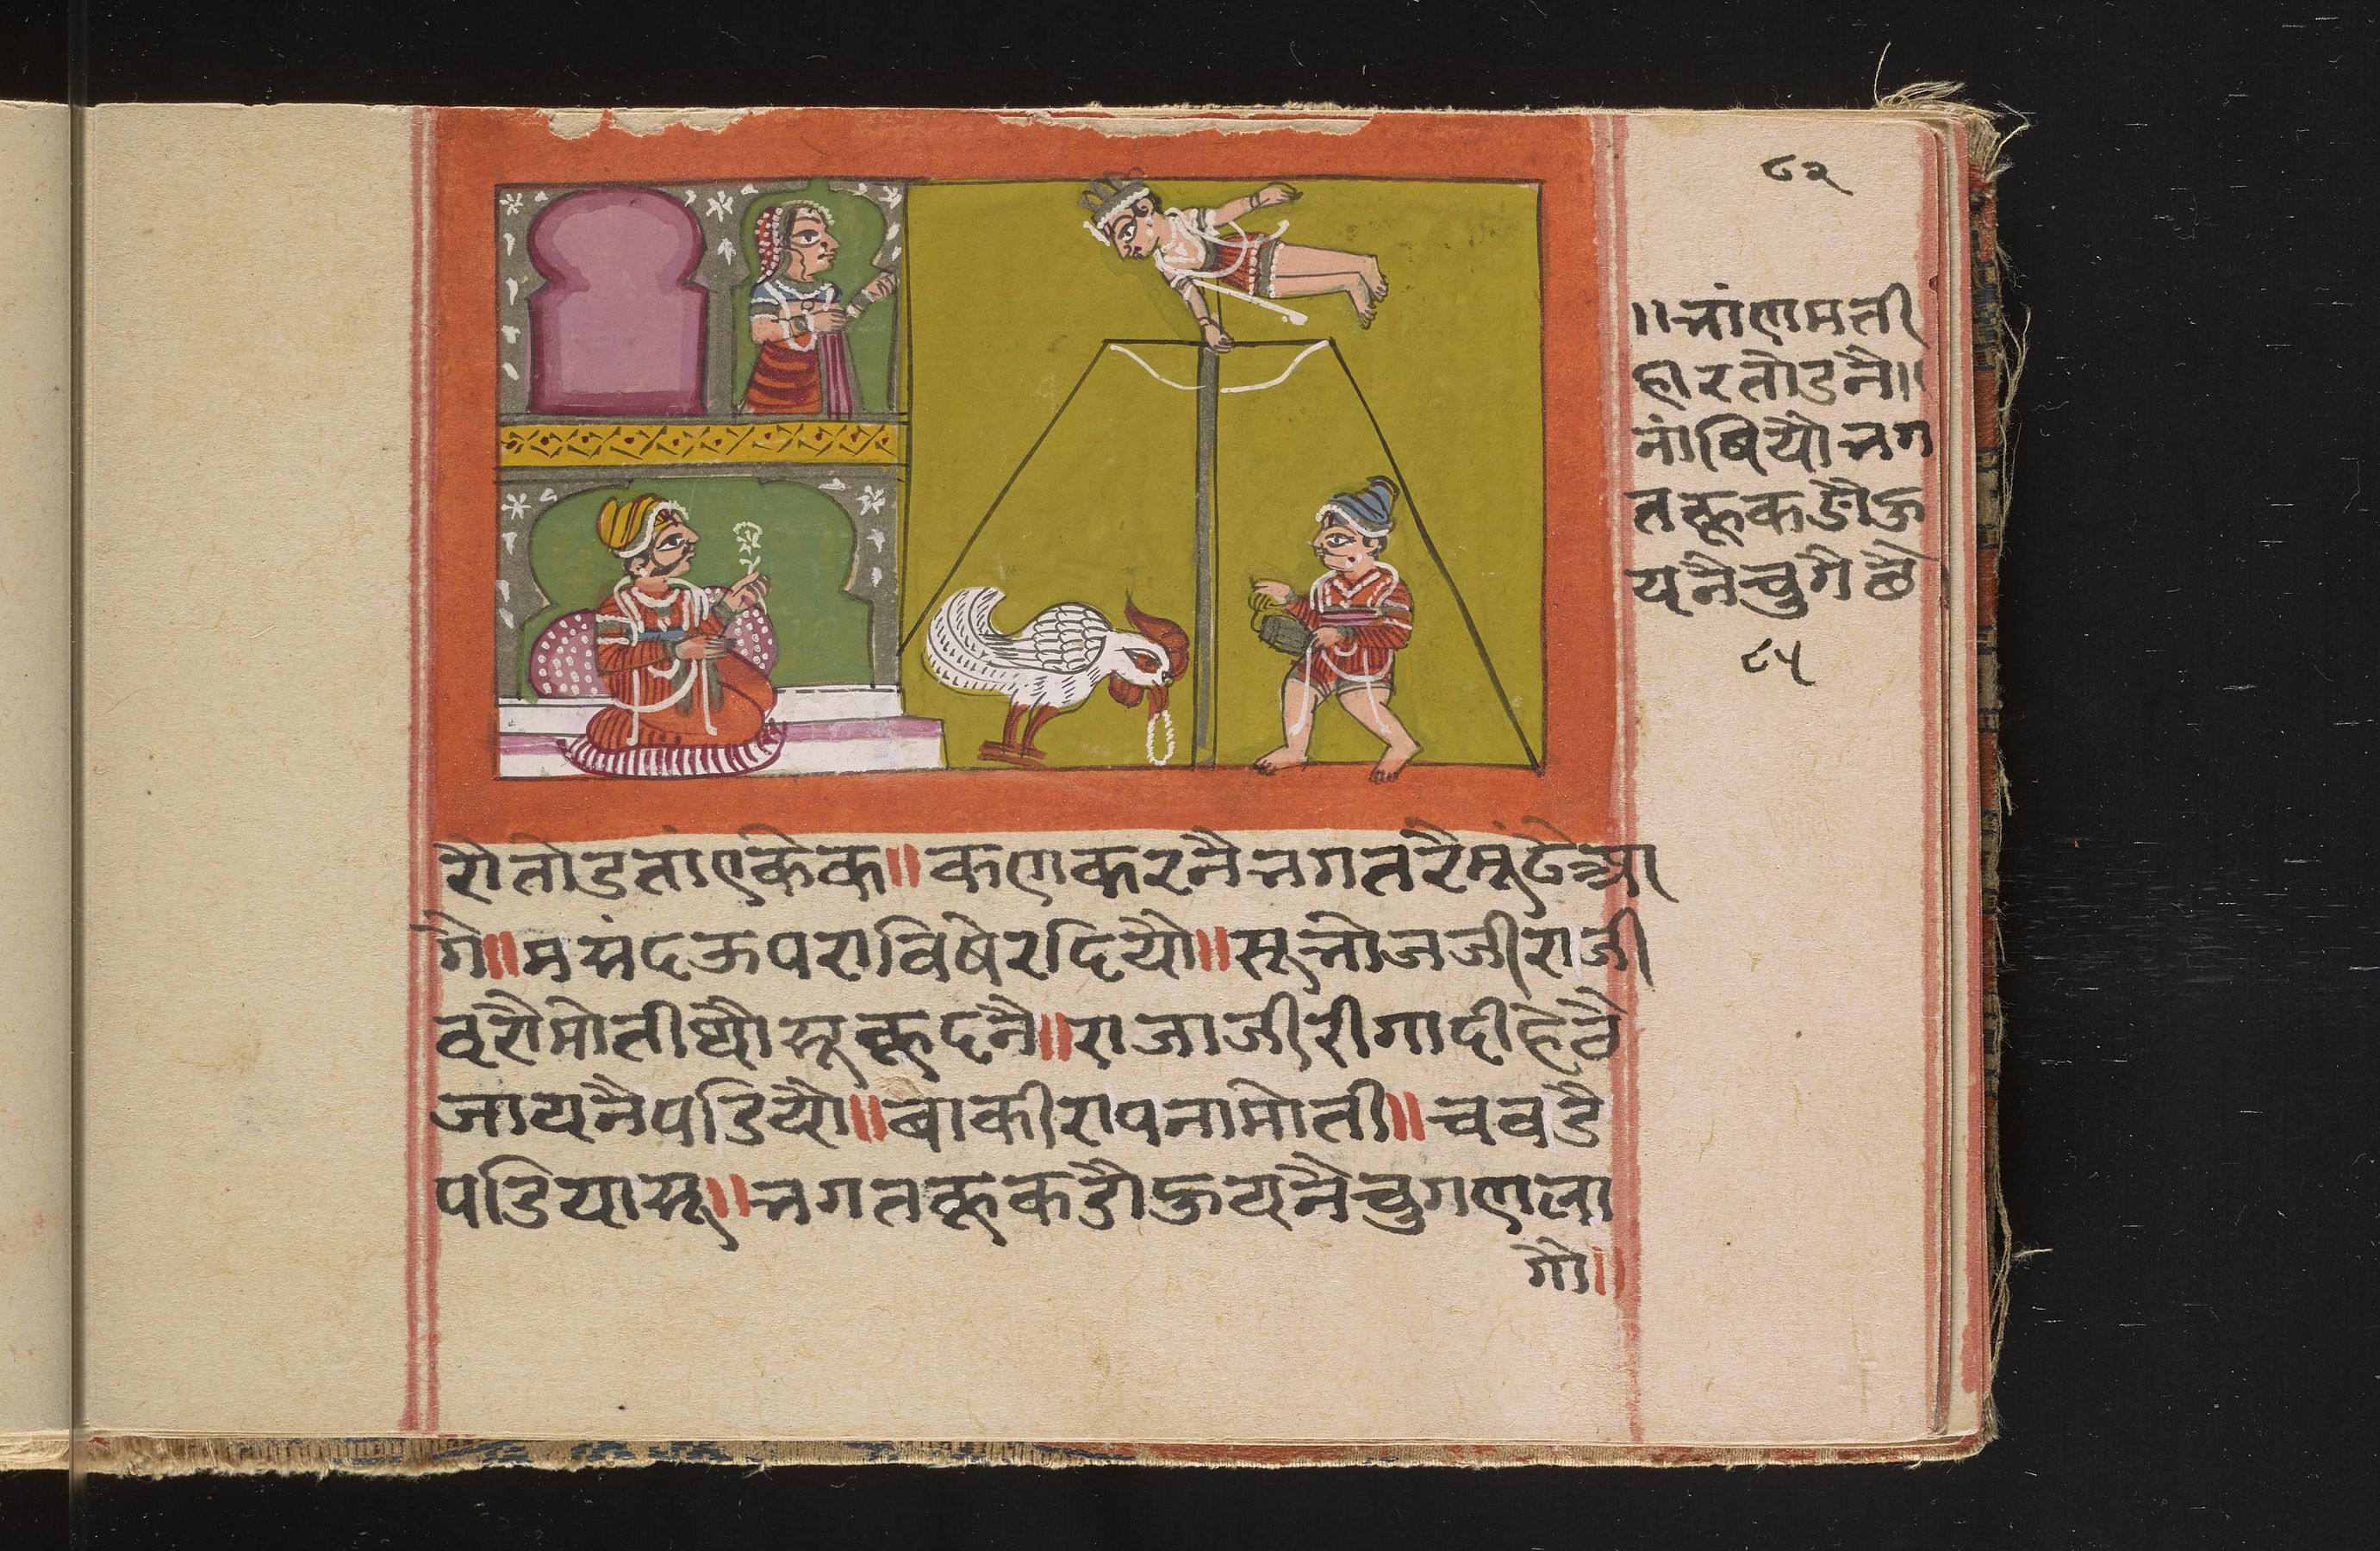 ८२
॥नांणमती
हारतोडनै॥
नांषियौ जग
त कूकडौ हु
यनै चुगै छै
८५
रौ तोडतां एकेक॥ कणकर नै जगत रै मूंढे आ
गै॥ मसंद ऊपरा विषेर दियौ॥ सू जो अजी राजी
व रौ मोती थौ सू कूद नै॥ राजाजी री गादी हेठै
जाय नै पडियौ॥ बाकी रा पना मोती॥ चवडै
पडिया सू॥ जगत कूकडौ हुय नै चुगण ला
गौ॥